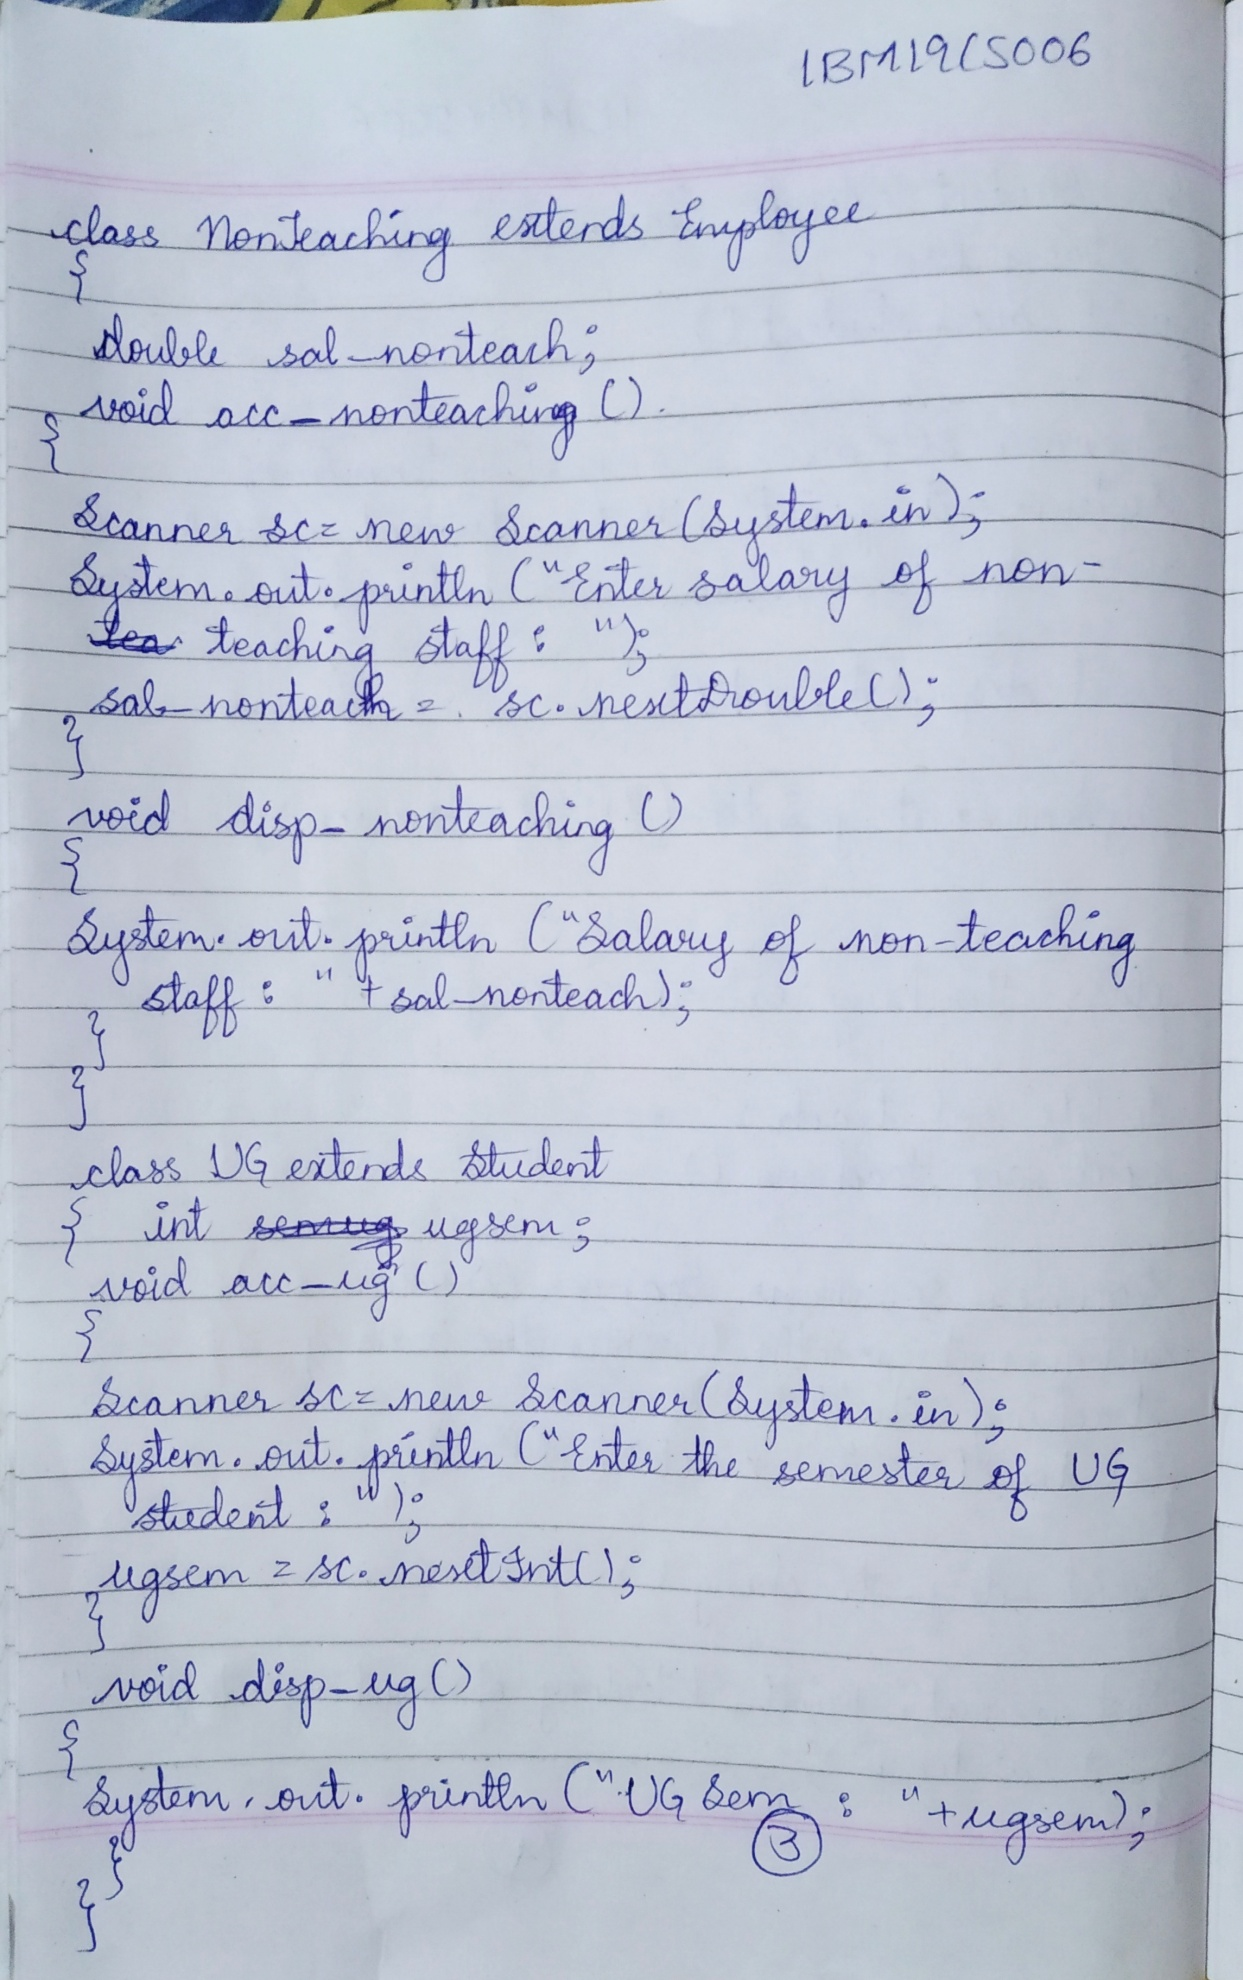 1BM19CS006
class NonTeaching extends Employee
{
double sal_nonteach;
void acc_nonteaching ()
{
Scanner sc= new Scanner(System.in);
System.out.println ("Enter salary of non-
teaching staff : ");
sal_nonteach = sc.nextDouble();
}
void disp_nonteaching ()
{
System.out.println ("Salary of non-teaching
staff : " + sal_nonteach);
}
}
class UG extends Student
{ int ugsem;
void acc_ug ()
{
Scanner sc= new Scanner(System.in);
System.out.println ("Enter the semester of UG
student : ");
ugsem = sc.nextInt();
}
void disp_ug()
{
System.out.println ("UG Sem : " +ugsem);
3
}
}